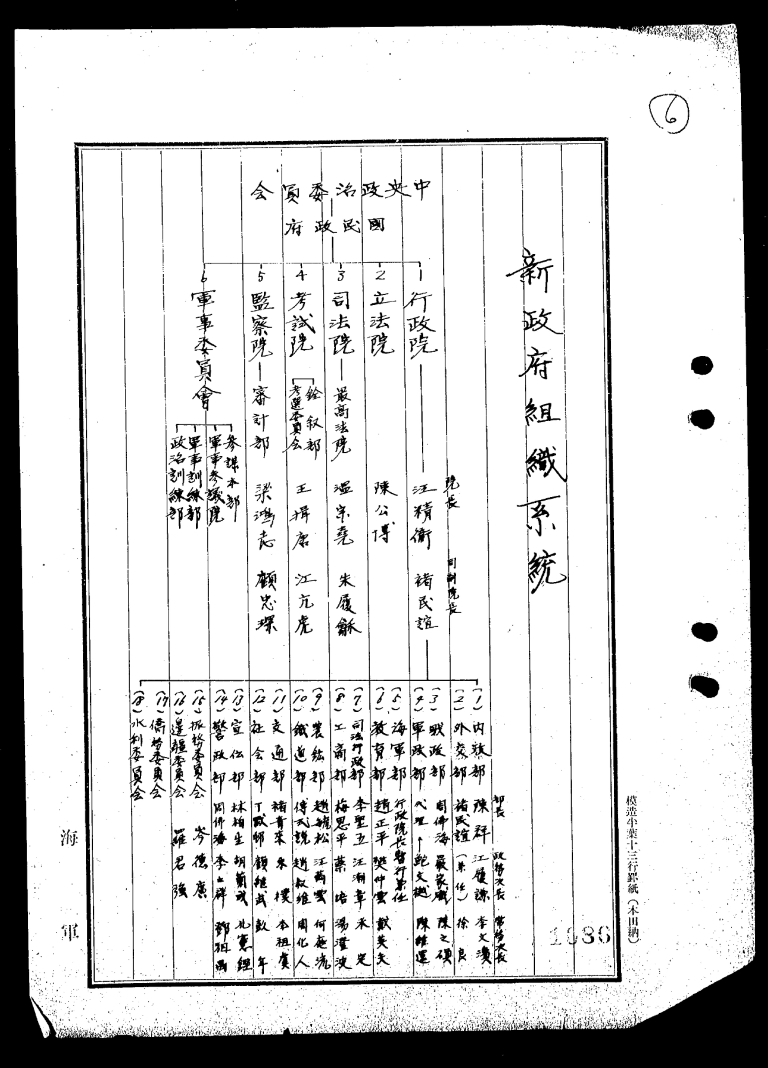 6
新政府組織系統
中央政治委員会
國民政府
院長
同副院長
1 行政院 汪精衛 褚民誼
2 立法院 陳公博
3 司法院 最高法院 温宗堯 朱履龢
4 考試院 銓叙部 考選委員会 王揖唐 江亢虎
5 監察院 審計部 梁鴻志 顧忠琛
6 軍事委員會
參謀本部
軍事参議院
軍事訓練部
政治訓練部
部長 政務次長 常務次長
(1) 内政部 陳群 江履謙 李文濱
(2) 外交部 褚民誼(兼任) 徐良
(3) 財政部 周佛海 嚴家熾 陳之碩
(4) 軍政部 代理 鮑文樾
(5) 海軍部 行政院長暫行兼任
(6) 教育部 趙正平 樊仲雲 戴英夫
(7) 司法行政部 李聖五 汪瀚章
(8) 工商部 梅思平
(9) 農鉱部 趙毓松 何庭流
(10) 鐵道部 傅式説 趙叔雍 周化人
(11) 交通部 諸青來 朱樸 李祖虞
(12) 社会部 丁默邨 顧継武
(13) 宣伝部 林柏生 胡蘭成 孔憲鏗
(14) 警政部 周佛海 李士群 鄧祖禹
(15) 振務委員会 岑德廣
(16) 邊疆委員会 羅君強
(17) 僑務委員会
(18) 水利委員会
海軍
模造半葉十三行罫紙(本田納)
1086